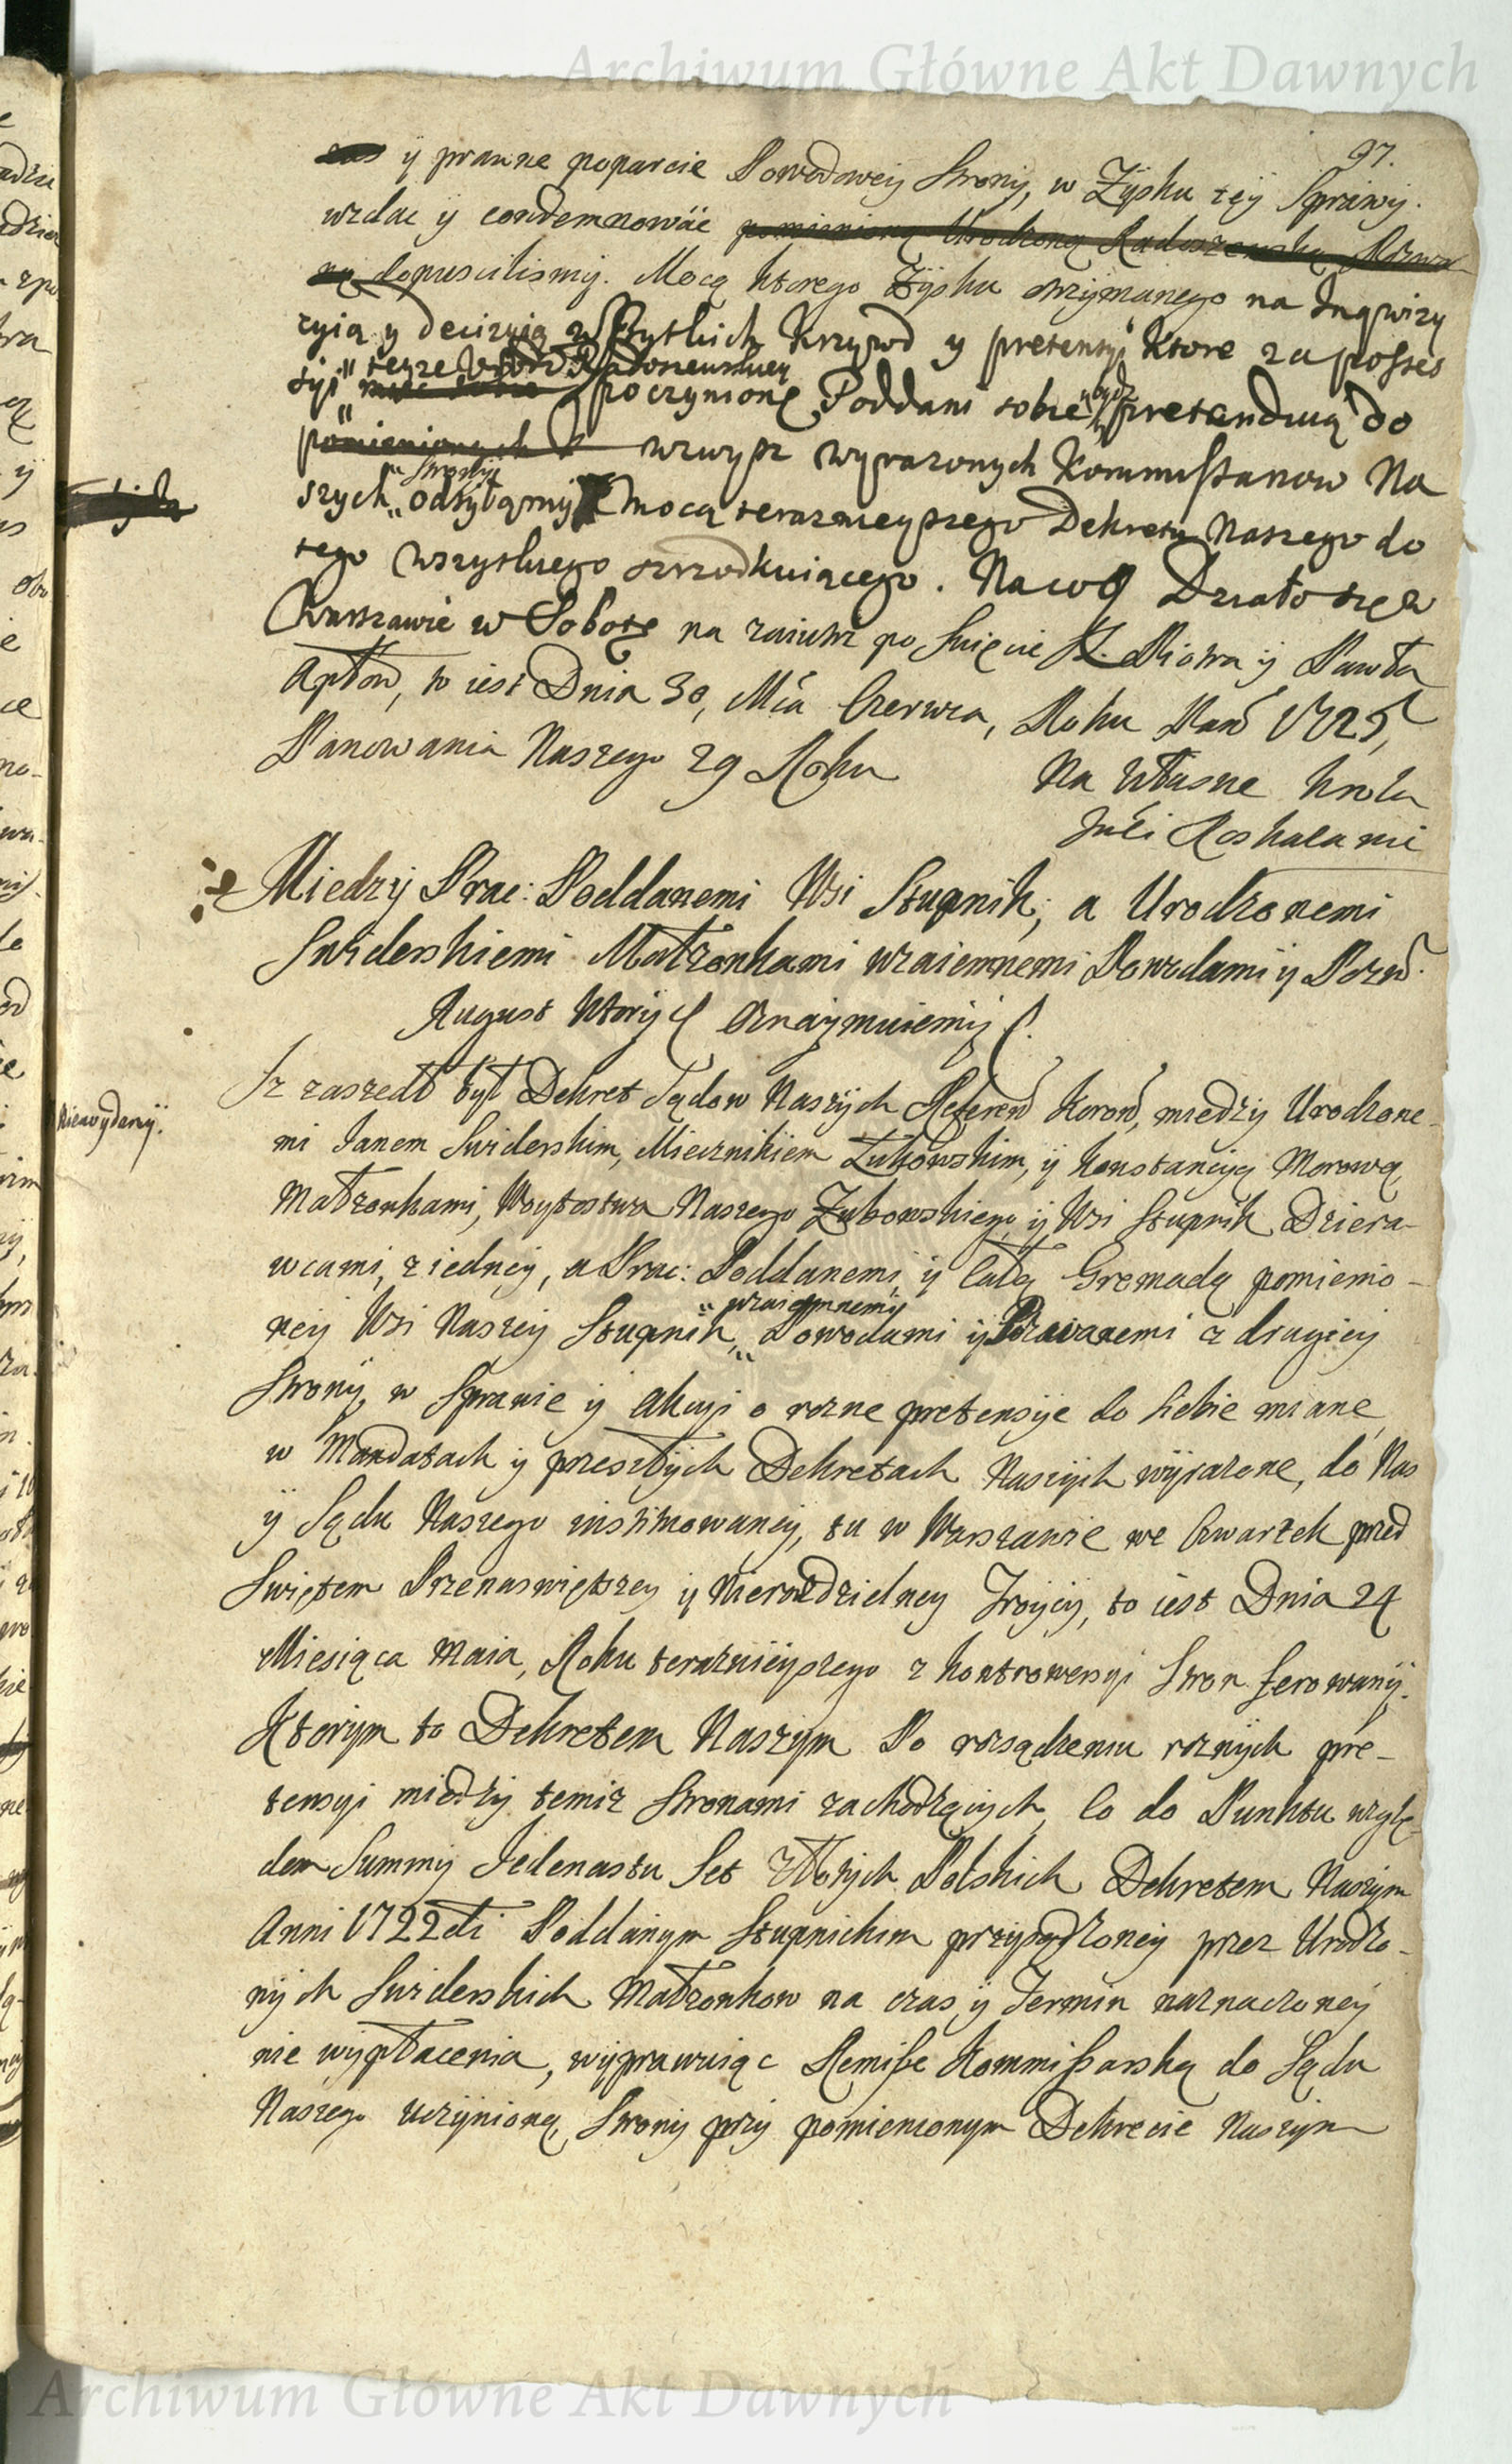 Archiwum Główne Akt Dawnych
97.
y prawne poparcie Powodowey Strony, w Zysku tey Sprawy
wzdac y condemnowac pomienioną Urodzoną Radoszewską Pozwa-
ną dopuscilismy. Mocą ktorego Zysku otrzymanego na Inqwizy
cyią y decizyią wszytkich Krzywd y pretensyi ktore za posses
syi teyze Urod Radoszewskiey poczynione Poddani sobie bydz pretenduią do
pomienionych wzwysz wyrazonych Kommissarzow Na
szych Strony odsyłamy mocą terazneyszego Dekretu Naszego do
tego wszystkiego szrzodkuiącego. Na co Działo się w
Warszawie w Sobotę na zaiutrz po Swięcie S. Piotra y Pawła
Apłow, to iest Dnia 30, Mca Czerwca, Roku Pan 1725,
Panowania Naszego 29 Roku
Na własne Krola
Jmci Roskazanie
Miedzy Prac: Poddanemi Wsi Stupnik, a Urodzonemi
Swiderskiemi Małzonkami wzaiemnemi Powodami y Pozw.
August Wtory Oznaymuiemy
Niewydany.
Iz zaszedł był Dekret Sądow Naszych Referen Koron, miedzy Urodzone-
mi Janem Swiderskim, Miecznikiem Łukowskim, y Konstancyą Morową
Małzonkami, Woytostwa Naszego Zukowskiego y Wsi Stupnik Dziera-
wcami, z iedney, a Prac: Poddanemi y Całą Gromadą pomienio-
ney Wsi Naszey Stupnik, wzaiemnemi Powodami y Pozwanemi z drugiey
Strony, w Sprawie y Akcyi o rozne pretensye do siebie miane
w Mandatach y przeszłych Dekretach Naszych wyrazone, do Nas
y Sądu Naszego instituowaney, tu w Warszawie we Czwartek przed
Swiętem Przenaswiętszey y Nierozdzielney Troycy, to iest Dnia 24
Miesiąca Maia, Roku terazneyszego z kontrowersyi Stron ferowany.
Ktorym to Dekretem Naszym Po rozsądzeniu roznych pre-
tensyi miedzy temiz Stronami zachodzących, Co do Punktu wzglę-
dem Summy Jedenastu Set Złotych Polskich Dekretem Naszym
Anni 1722di Poddanym Stupnickim przysądzoney przez Urodzo-
nych Swiderskich Małzonkow na czas y Termin naznaczoney
nie wypłacenia, wyprawuiąc Remisse Kommissarską do Sądu
Naszego uczynioną, Strony przy pomienionym Dekrecie Naszym
Archiwum Główne Akt Dawnych